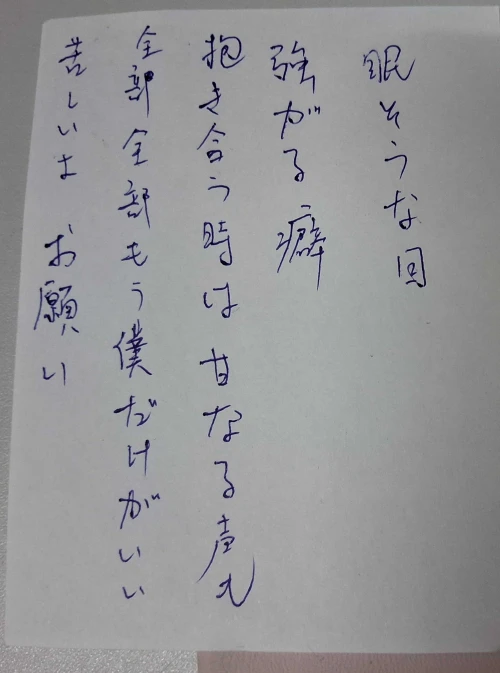 眠そうな回
強がる癖
抱き合う時は 甘なる声も
全部全部もう僕だけがいい
苦しいよ お願い